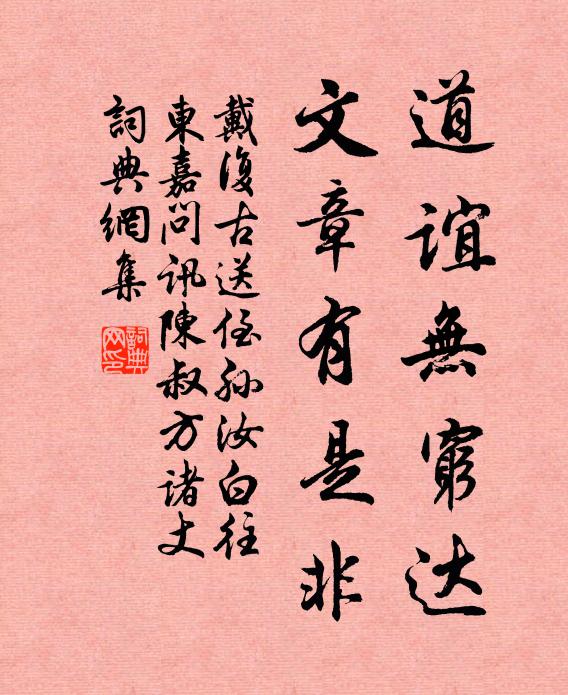 道誼無窮达
文章有是非
戴復古送侄孙汝白往
東嘉問訊陳叔方諸丈
詞典網集
詞典网印